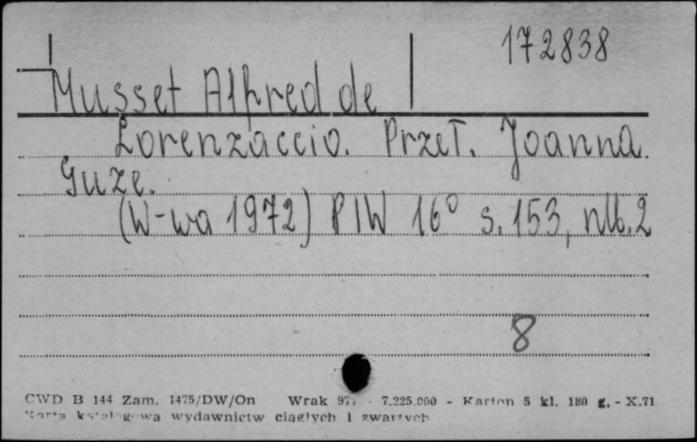 172838
Musset Alfred de
Lorenzaccio. Przeł. Joanna
Guze.
(W-wa 1972) PIW 16° s. 153, nlb. 2
8
CWD B 144 Zam. 1475/DW/On Wrak 7.225.000 - Karton 5 kl. 180 g. - X.71
Karta katalogowa wydawnictw ciągłych i zwartych